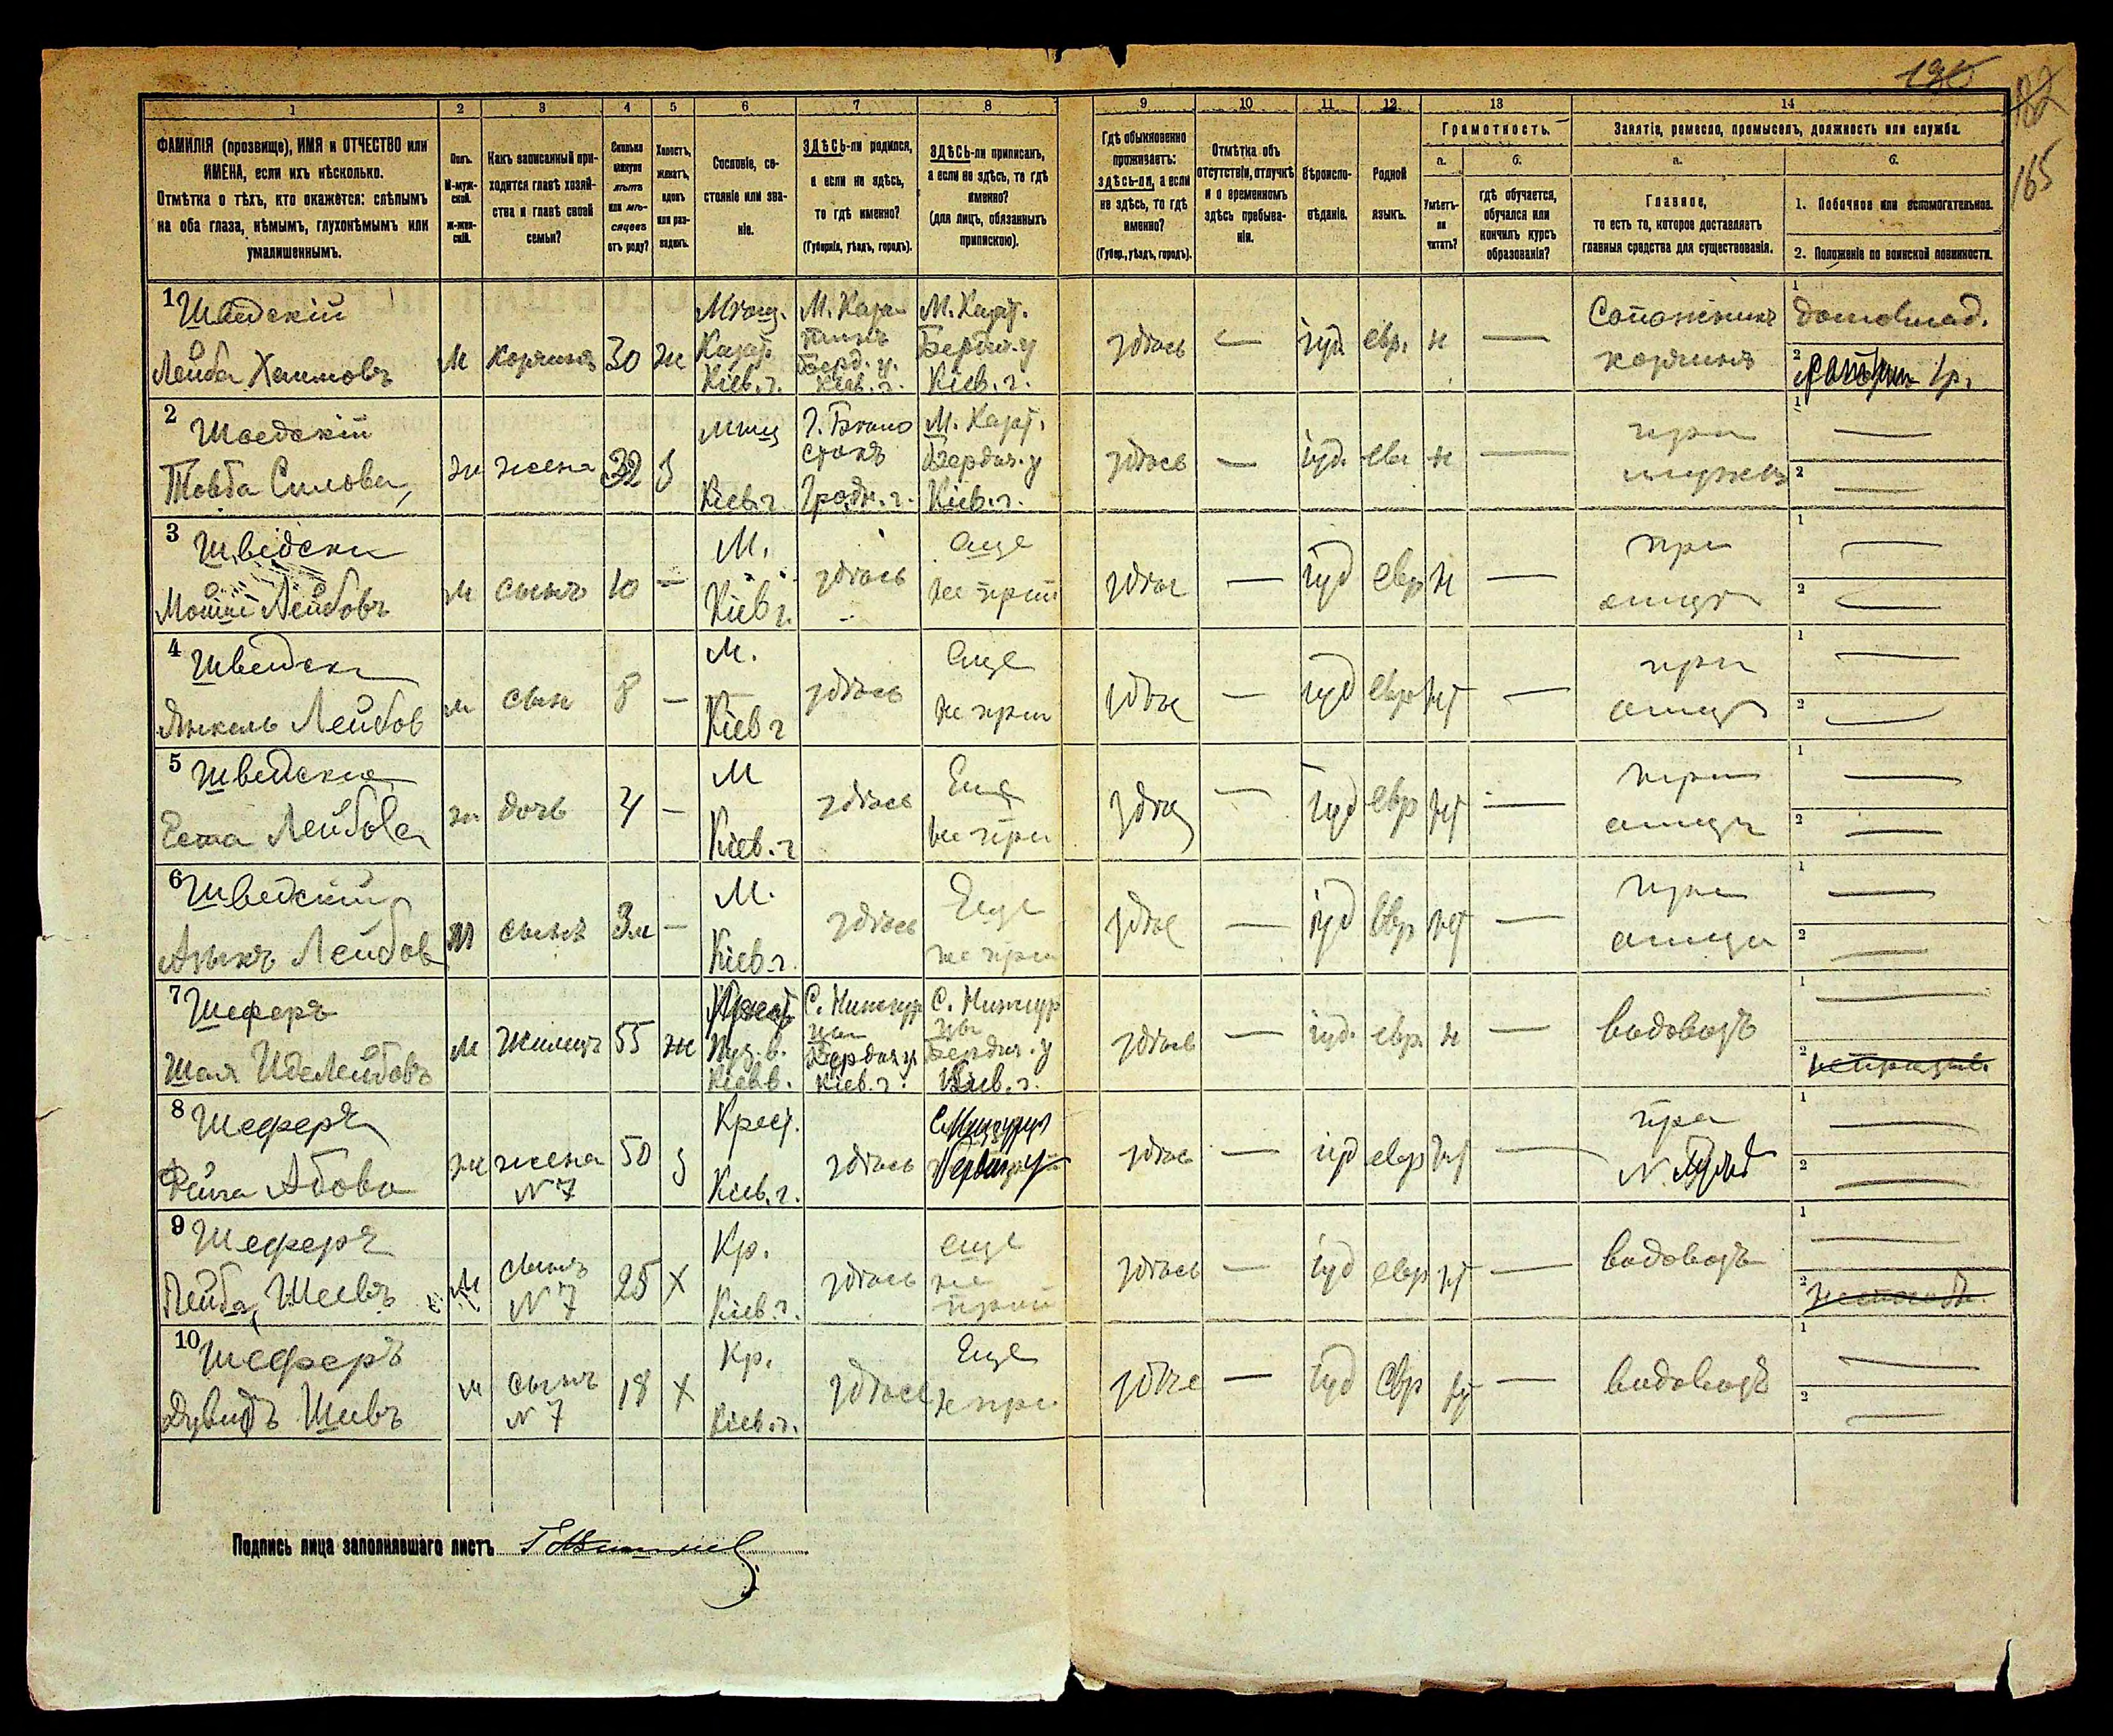 130
182
165
1 2 3 4 5 6 7 8 9 10 11 12 13 14
ФАМИЛІЯ (прозвище), ИМЯ и ОТЧЕСТВО или ИМЕНА, если ихъ нѣсколько.
Отмѣтка о тѣхъ, кто окажется: слѣпымъ на оба глаза, нѣмымъ, глухонѣмымъ или умалишеннымъ.
Полъ. М-муж-ской. Ж-жен-скій.
Какъ записанный при-ходится главѣ хозяй-ства и главѣ своей семьи?
Сколько минуло лѣтъ или мѣ-сяцевъ отъ роду?
Холостъ, женатъ, вдовъ или раз-веденъ.
Сословіе, со-стояніе или зва-ніе.
ЗДѢСЬ-ли родился, а если не здѣсь, то гдѣ именно?
(Губернія, уѣздъ, городъ).
ЗДѢСЬ-ли приписанъ, а если не здѣсь, то гдѣ именно?
(для лицъ, обязанныхъ припискою).
Гдѣ обыкновенно проживаетъ: здѣсь-ли, а если не здѣсь, то гдѣ именно?
(Губер., уѣздъ, городъ).
Отмѣтка объ отсутствіи, отлучкѣ и о временномъ здѣсь пребыва-ніи.
Вѣроиспо-вѣданіе.
Родной языкъ.
Грамотность.
а. б.
Умѣетъ-ли читать?
гдѣ обучается, обучался или кончилъ курсъ образованія?
Занятіе, ремесло, промыселъ, должность или служба.
а. б.
Главное,
то есть то, которое доставляетъ главныя средства для существованія.
1. Побочное или вспомогательное.
2. Положеніе по воинской повинности.
1 Шведскій М. Каза М. Казат.
Лейба Хаимовъ М 30 ж Кіев. г. Берд. у. Кіев. г. Кіев. г. здѣсь — іуд. евр. н — Сапожникъ домовлад.
2 Шведскій
Товба жена 32 з Кіев. г. Гродн. г. М. Казат. Бердич. у Кіев. г. здѣсь — іуд. евр н — при мужѣ
3 Шведски
Лейбовъ м сынъ 10 — М. Кіев г. здѣсь еще не прип здѣс — іуд евр н — при отцѣ
4 Шведск
Янкель Лейбов м сын 8 — М. Кіев г здѣсь еще не при здѣс — іуд евр нѣт — при отцѣ
5 Шведская
Лейбова ж дочь 4 — М Кіев. г здѣсь Еще не при — іуд евр нѣт — при отцѣ
6 Шведскій
Лейбов м сынъ 3м — М. Кіев. г. здѣсь Еще не при здѣс — іуд евр нѣт — при отцѣ
7 Шеферъ
Шая м Жилецъ 55 ж Кіев. г. Бердич. у Кіев. г. здѣсь — іуд. евр. н — водовозъ
8 Шеферъ
Абова ж жена N 7 50 з Крест. Кіев. г. здѣсь здѣсь — іуд евр нѣт — при
9 Шеферъ
Лейба Шеевъ м сынъ N 7 25 х Кр. Кіев г. здѣсь еще не прип здѣсь — іуд евр нѣт — водовозъ
10 Шеферъ
Дувидъ Шивъ м сынъ N 7 18 х Кр. Кіев. г. здѣсь Еще не при здѣс — іуд евр нѣт — водовозъ
Подпись лица заполнявшаго листъ